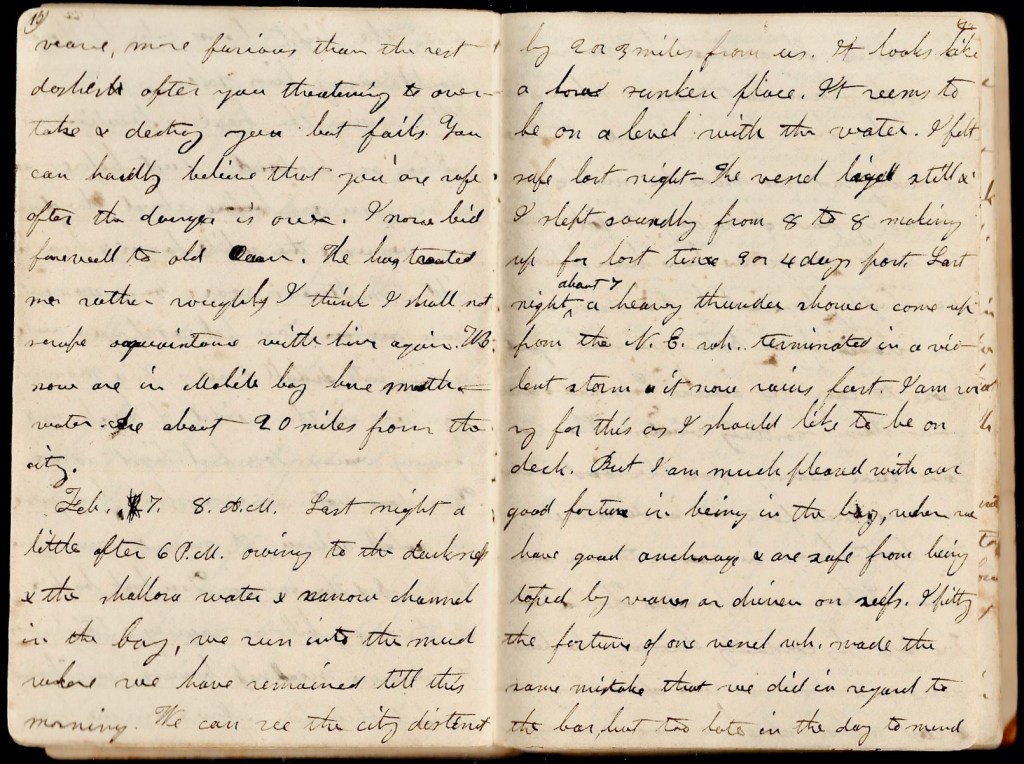 13
wave, more furious than the rest
dashes after you threatening to over-
take & destroy you but fails. You
can hardly believe that you are safe
after the danger is over. I now bid
farewell to old Ocean. He has treated
me rather roughly I think I shall not
acquaintance with him again. We
now are in Mobile bay have smooth
water. Are about 20 miles from the
city.
Feb. 7. 8. A.M. Last night a
little after 6 P.M. owing to the darkness
& the shallow water & narrow channel
in the bay, we run into the mud
where we have remained till this
morning. We can see the city distant
by 2 or 3 miles from us. It looks like
a low sunken place. It seems to
be on a level with the water. I felt
safe last night – the vessel layed still &
I slept soundly from 8 to 8 making
up for lost time 3 or 4 days past. Last
about 7
night ^ a heavy thunder shower come up
from the N. E. wh. terminated in a vio-
lent storm & it now rains fast. I am sor
ry for this as I should like to be on
deck. But I am much pleased with our
good fortune in being in the bay, where we
have good anchorage & are safe from being
tossed by waves or driven on reefs. I pitty
the fortune of one vessel wh. made the
same mistake that we did in regard to
the bar, but too late in the day to mend